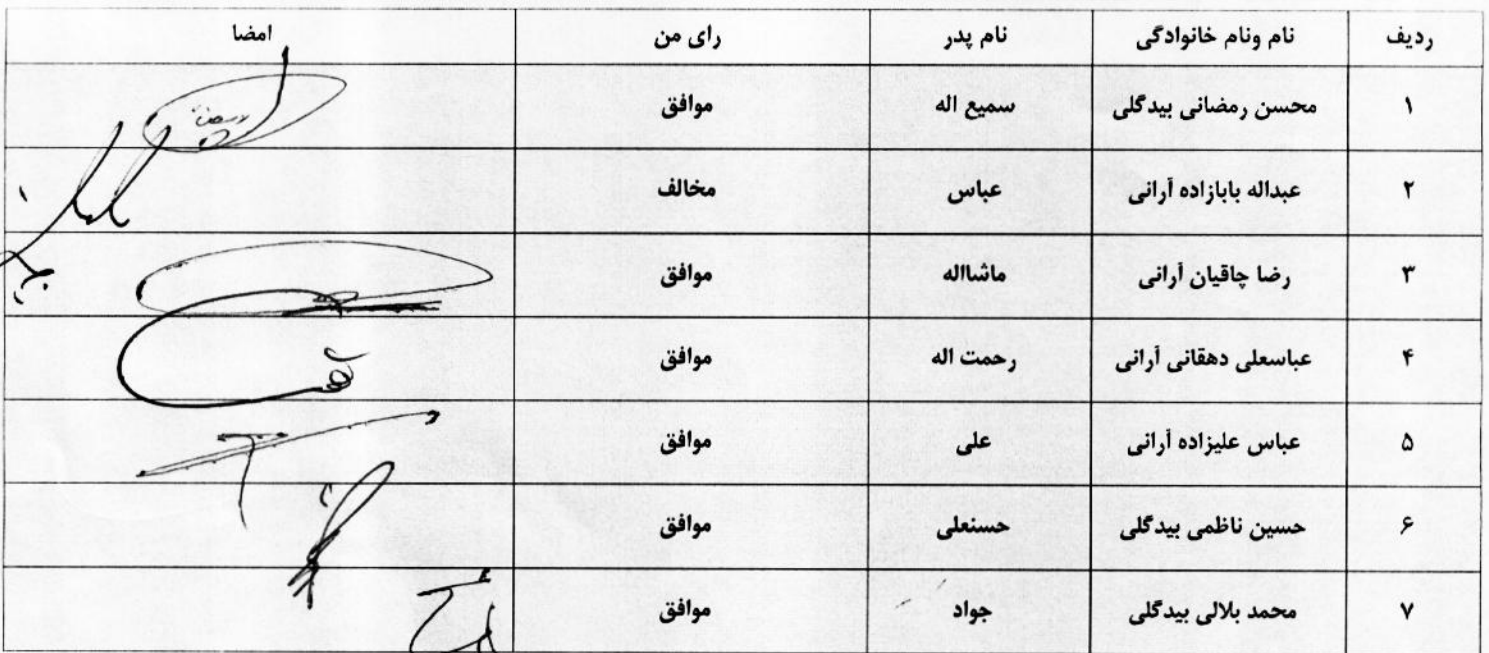 ردیف نام ونام خانوادگی نام پدر رای من امضا
۱ محسن رمضانی بیدگلی سمیع اله موافق
۲ عبداله بابازاده آرانی عباس مخالف
۳ رضا چاقیان آرانی ماشااله موافق
۴ عباسعلی دهقانی آرانی رحمت اله موافق
۵ عباس علیزاده آرانی علی موافق
۶ حسین ناظمی بیدگلی حسنعلی موافق
۷ محمد بلالی بیدگلی جواد موافق